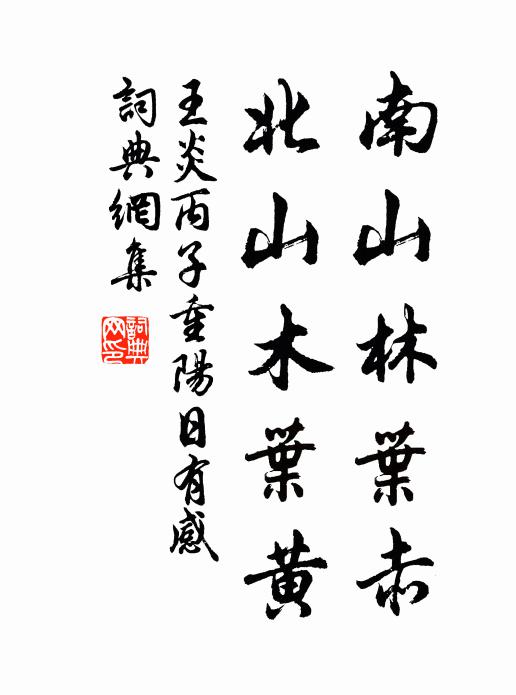 南山林葉赤
北山木葉黃
王炎丙子重陽日有感
詞典網集
詞典網印